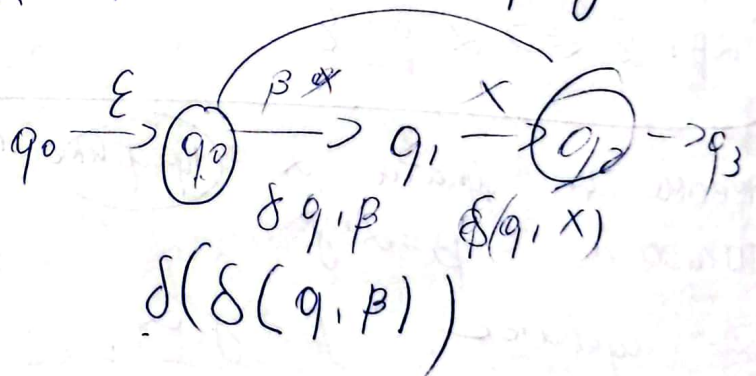 q0 —ε→ q0 —β→ q1 —X→ q2 → q3
δ q, β δ(q, X)
δ(δ(q, β))